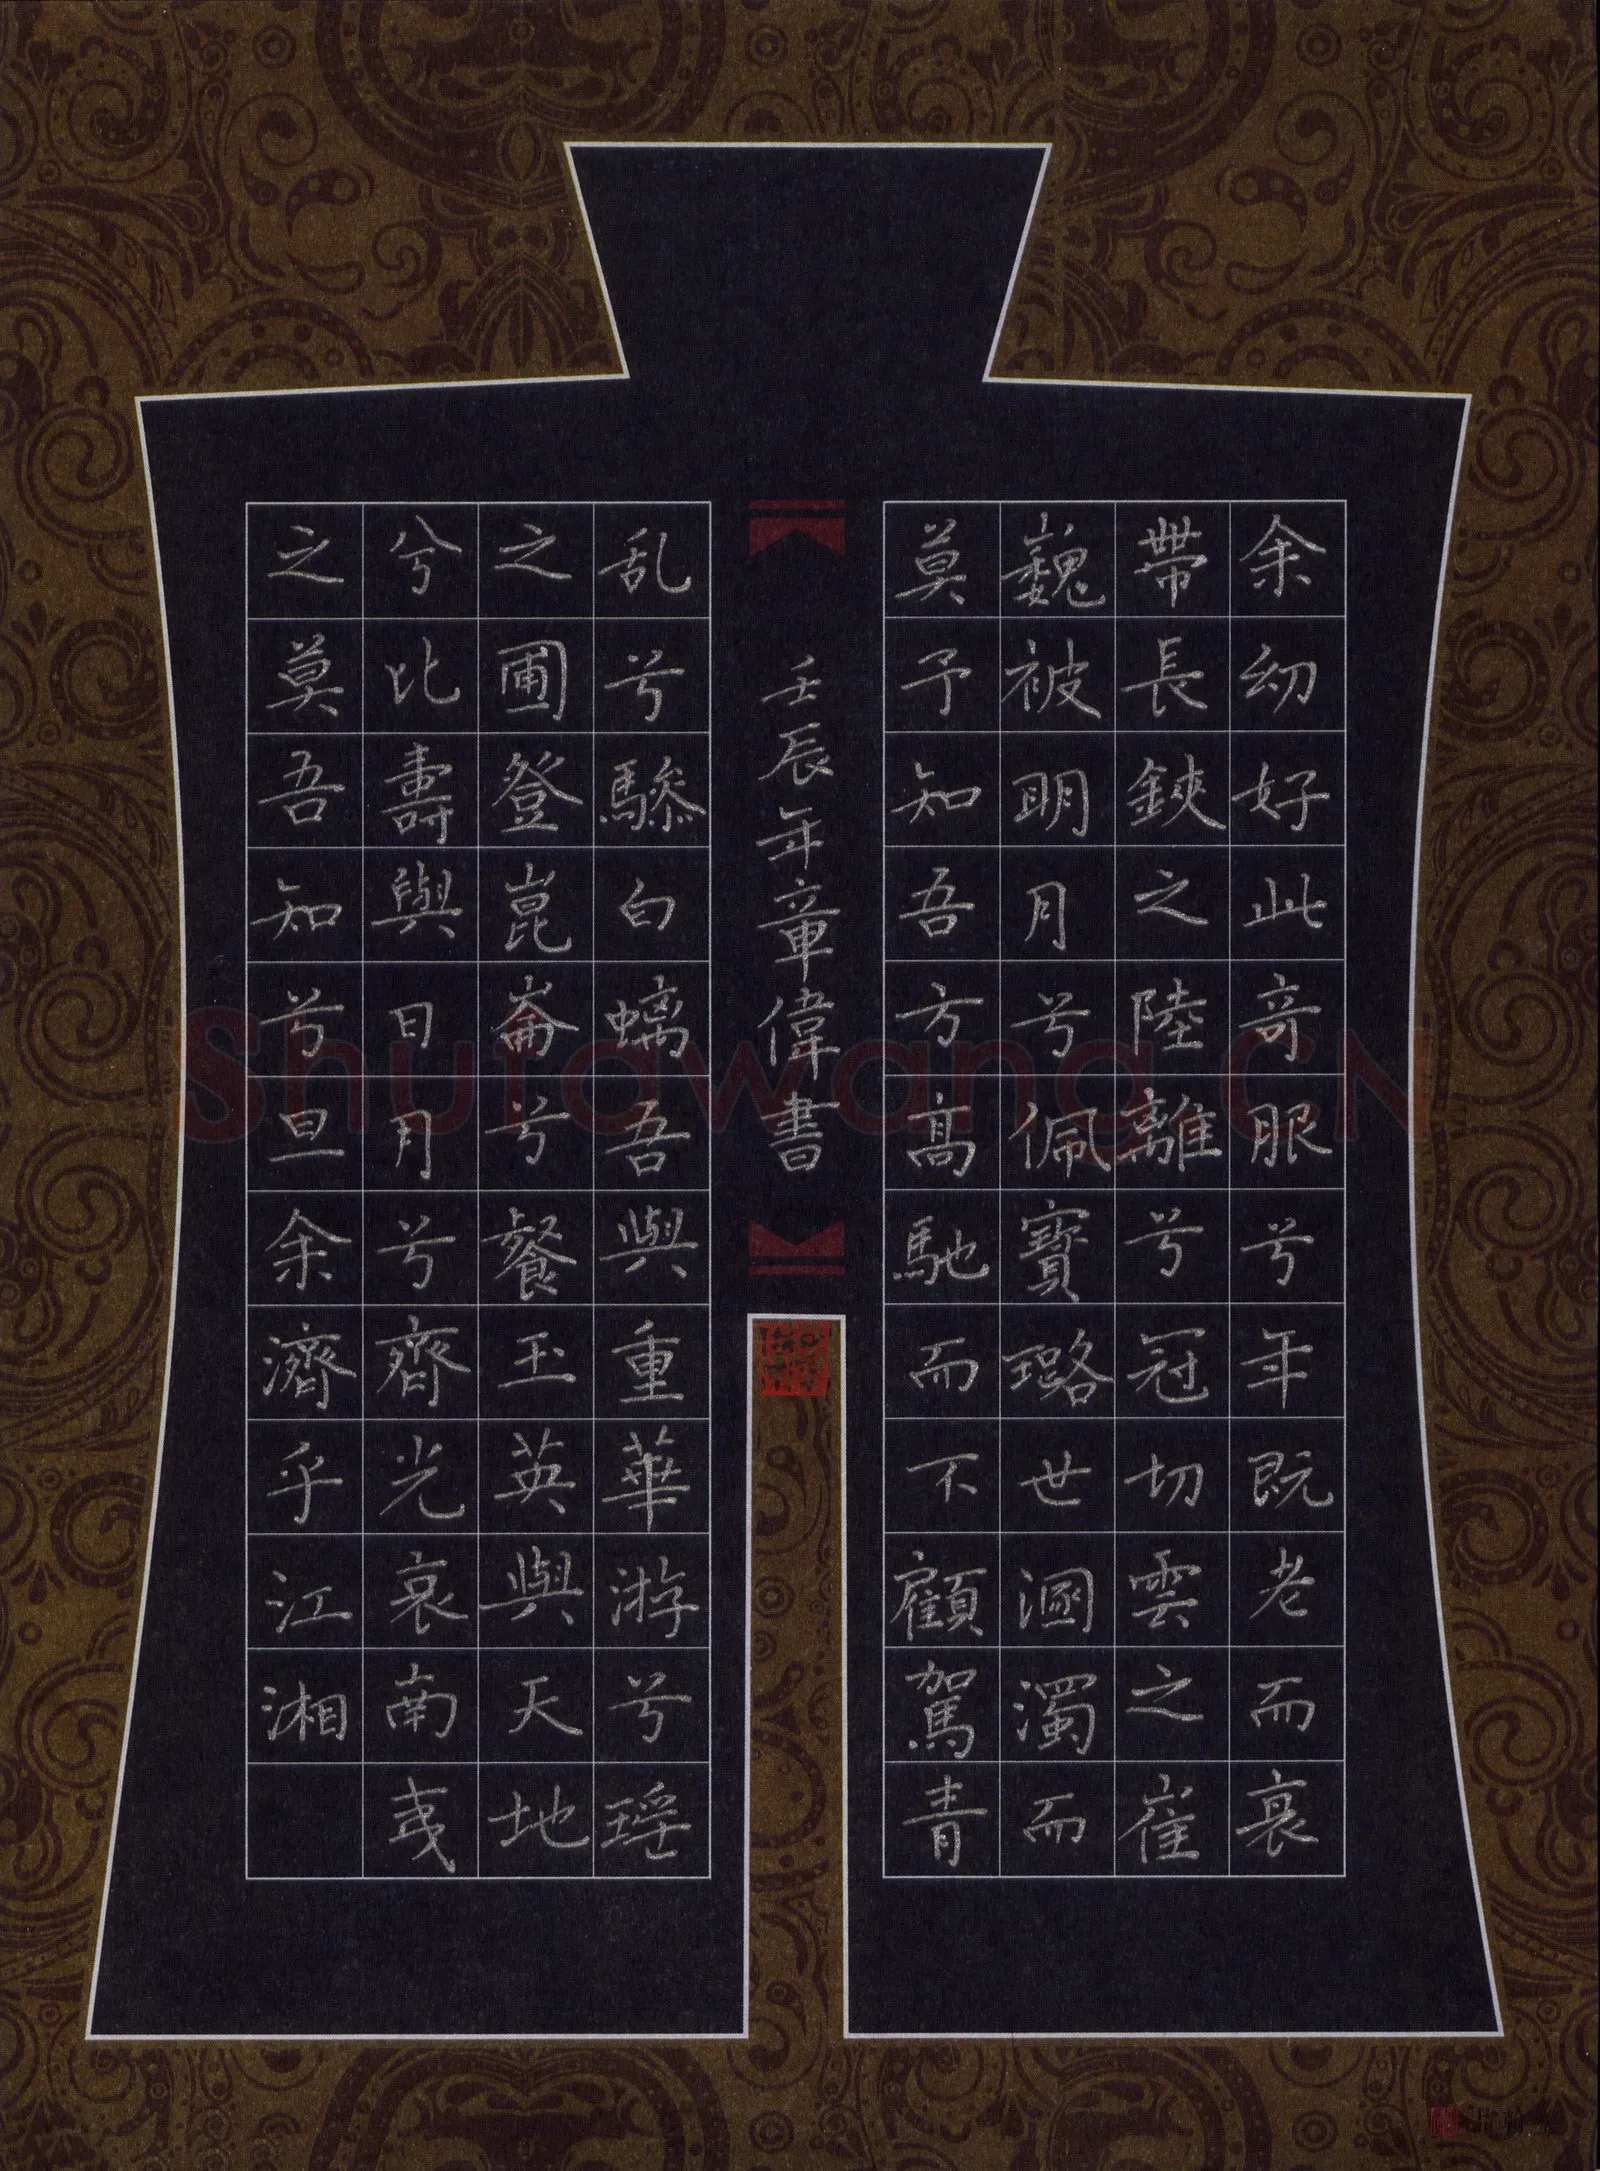 余幼好此奇服兮年既老而衰
帶長鋏之陸離兮冠切雲之崔
巍被明月兮佩寶璐世溷濁而
莫予知吾方高馳而不顧駕青
乱兮驂白螭吾與重華游兮瑶
之圃登崑崙兮餐玉英與天地
兮比壽與日月兮齊光哀南夷
之莫吾知兮旦余濟乎江湘
壬辰年章偉書
Shufawang.CN